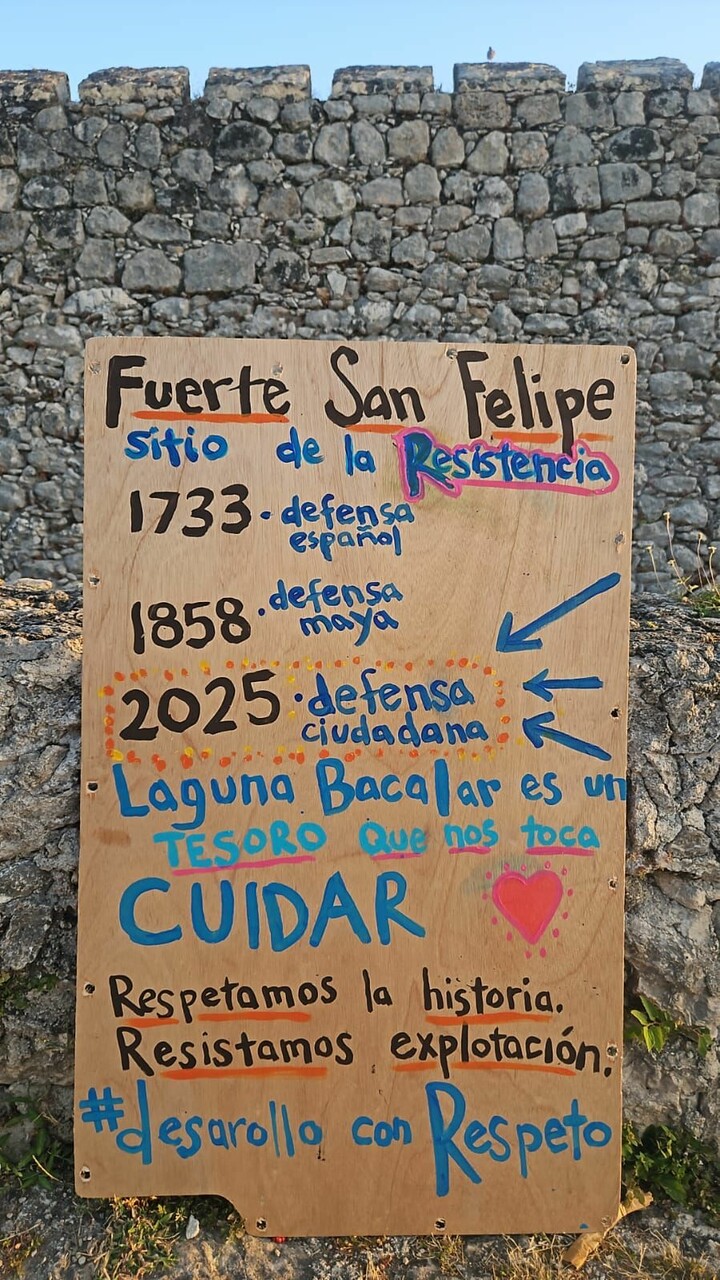 Fuerte San Felipe
sitio de la Resistencia
1733 • defensa
español
1858 • defensa
maya
2025 • defensa
ciudadana
Laguna Bacalar es un
TESORO Que nos toca
CUIDAR
Respetamos la historia.
Resistamos explotación.
#desarollo con Respeto